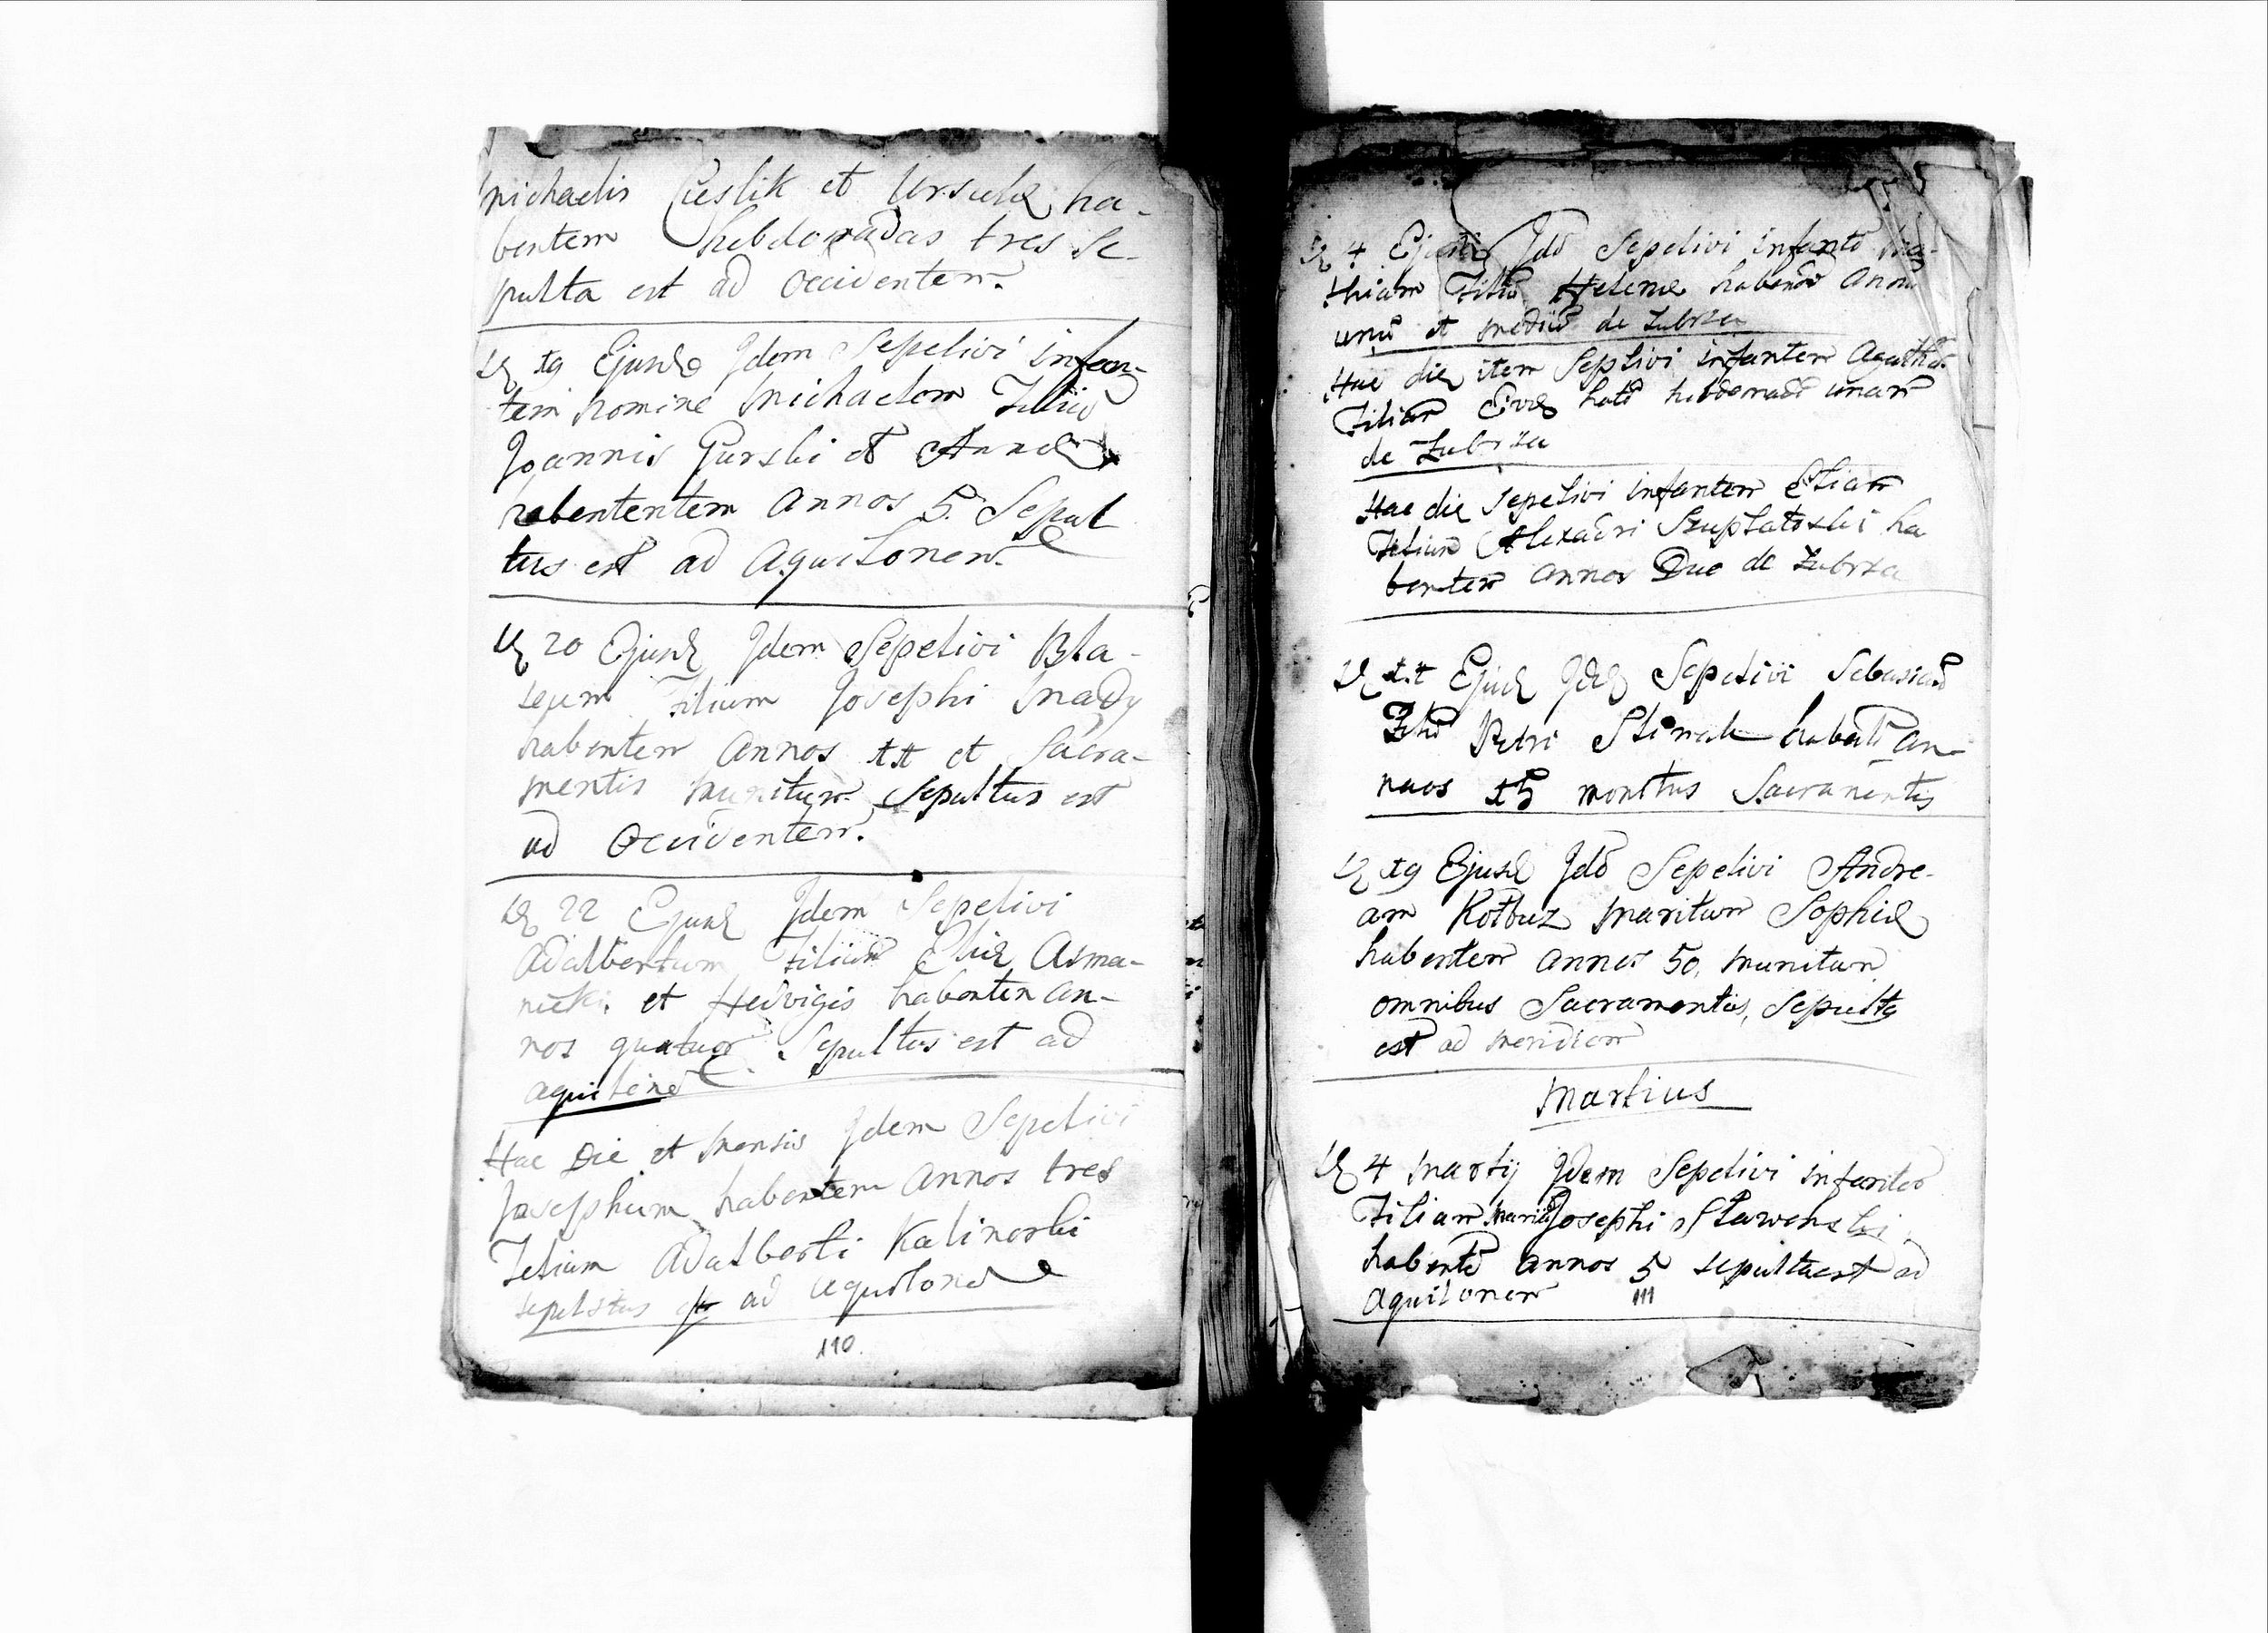 Michaelis Cieslik et Ursulæ ha-
bentem hebdomadas tres Se-
pulta est ad Occidentem.
19 Ejusde Jdem Sepelivi infan-
tem nomine Michaelem Filiū
Joannis Gurski et Annæ
habententem annos 5. Sepul
tus est ad Aquilonem.
20 Ejusd Jdem Sepelivi Bla-
seum Filium Josephi Mady
habentem annos 11 et Sacra-
mentis munitum Sepultus est
ad Occidentem.
22 Ejusd Jdem Sepelivi
Adalbertum Filium Eliæ Asma-
nicki et Hedvigis habentem an-
nos quatuor Sepultus est ad
aquilone
Hac Die et Mensis Jdem Sepelivi
Josephum habentem Annos tres
Filium Adalberti Kalinoski
sepulstus ad aquilone
110.
4 Jdē Sepelivi infantē Ma-
thiam Filiū Helenæ habentē annū
unū et mediū de Zubrza
Hac die item Seplivi infantem Agathā
Filiam Evæ unam
de Zubrza
Hac die Sepelivi infantem Eliam
Filium Alexadri ha
bentem annos Duo de Zubrza
11 Ejusd Sepelivi Sebasianū
Filiū Petri an-
naos 15 monitus Sacramentis
19 Ejusd Jdē Sepelivi Andre-
am Kotbuz Maritum Sophiæ
habentem annos 50, munitum
omnibus Sacramentis, Sepults
est ad meridiem
Martius
4 Martij Jdem Sepelivi infantē
Filiam Mariā Josephi Stawenski
habentē annos 5 sepultaest ad
Aquilonem
111